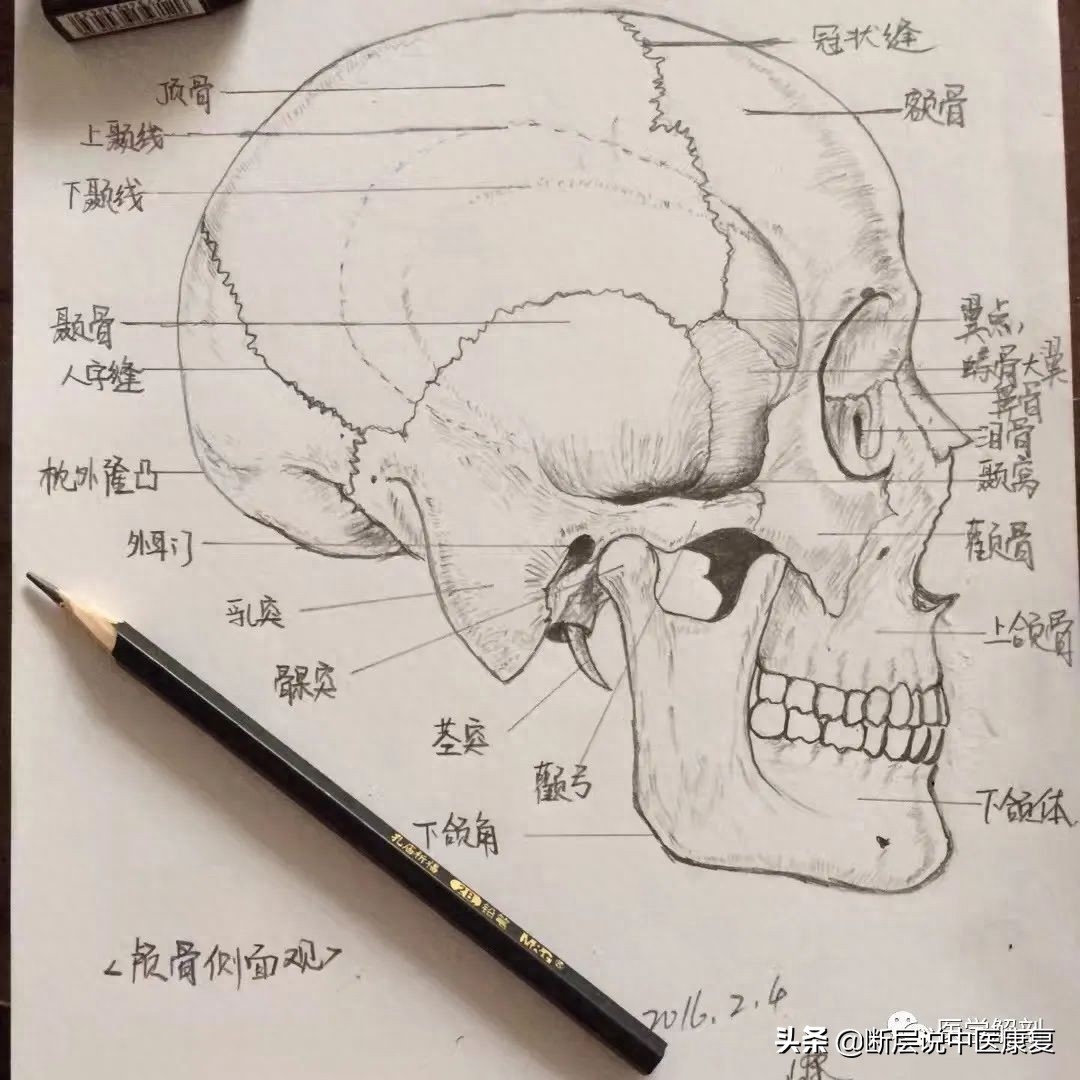 冠状缝
顶骨
额骨
上颞线
下颞线
颞骨
翼点
人字缝
蝶骨大翼
鼻骨
泪骨
枕外隆凸
颞窝
外耳门
颧骨
乳突
上颌骨
髁突
茎突
颧弓
下颌体
下颌角
孔庙祈福
2B 铅笔
M&G®
<颅骨侧面观>
2016.2.4
医学解剖
头条 @断层说中医康复